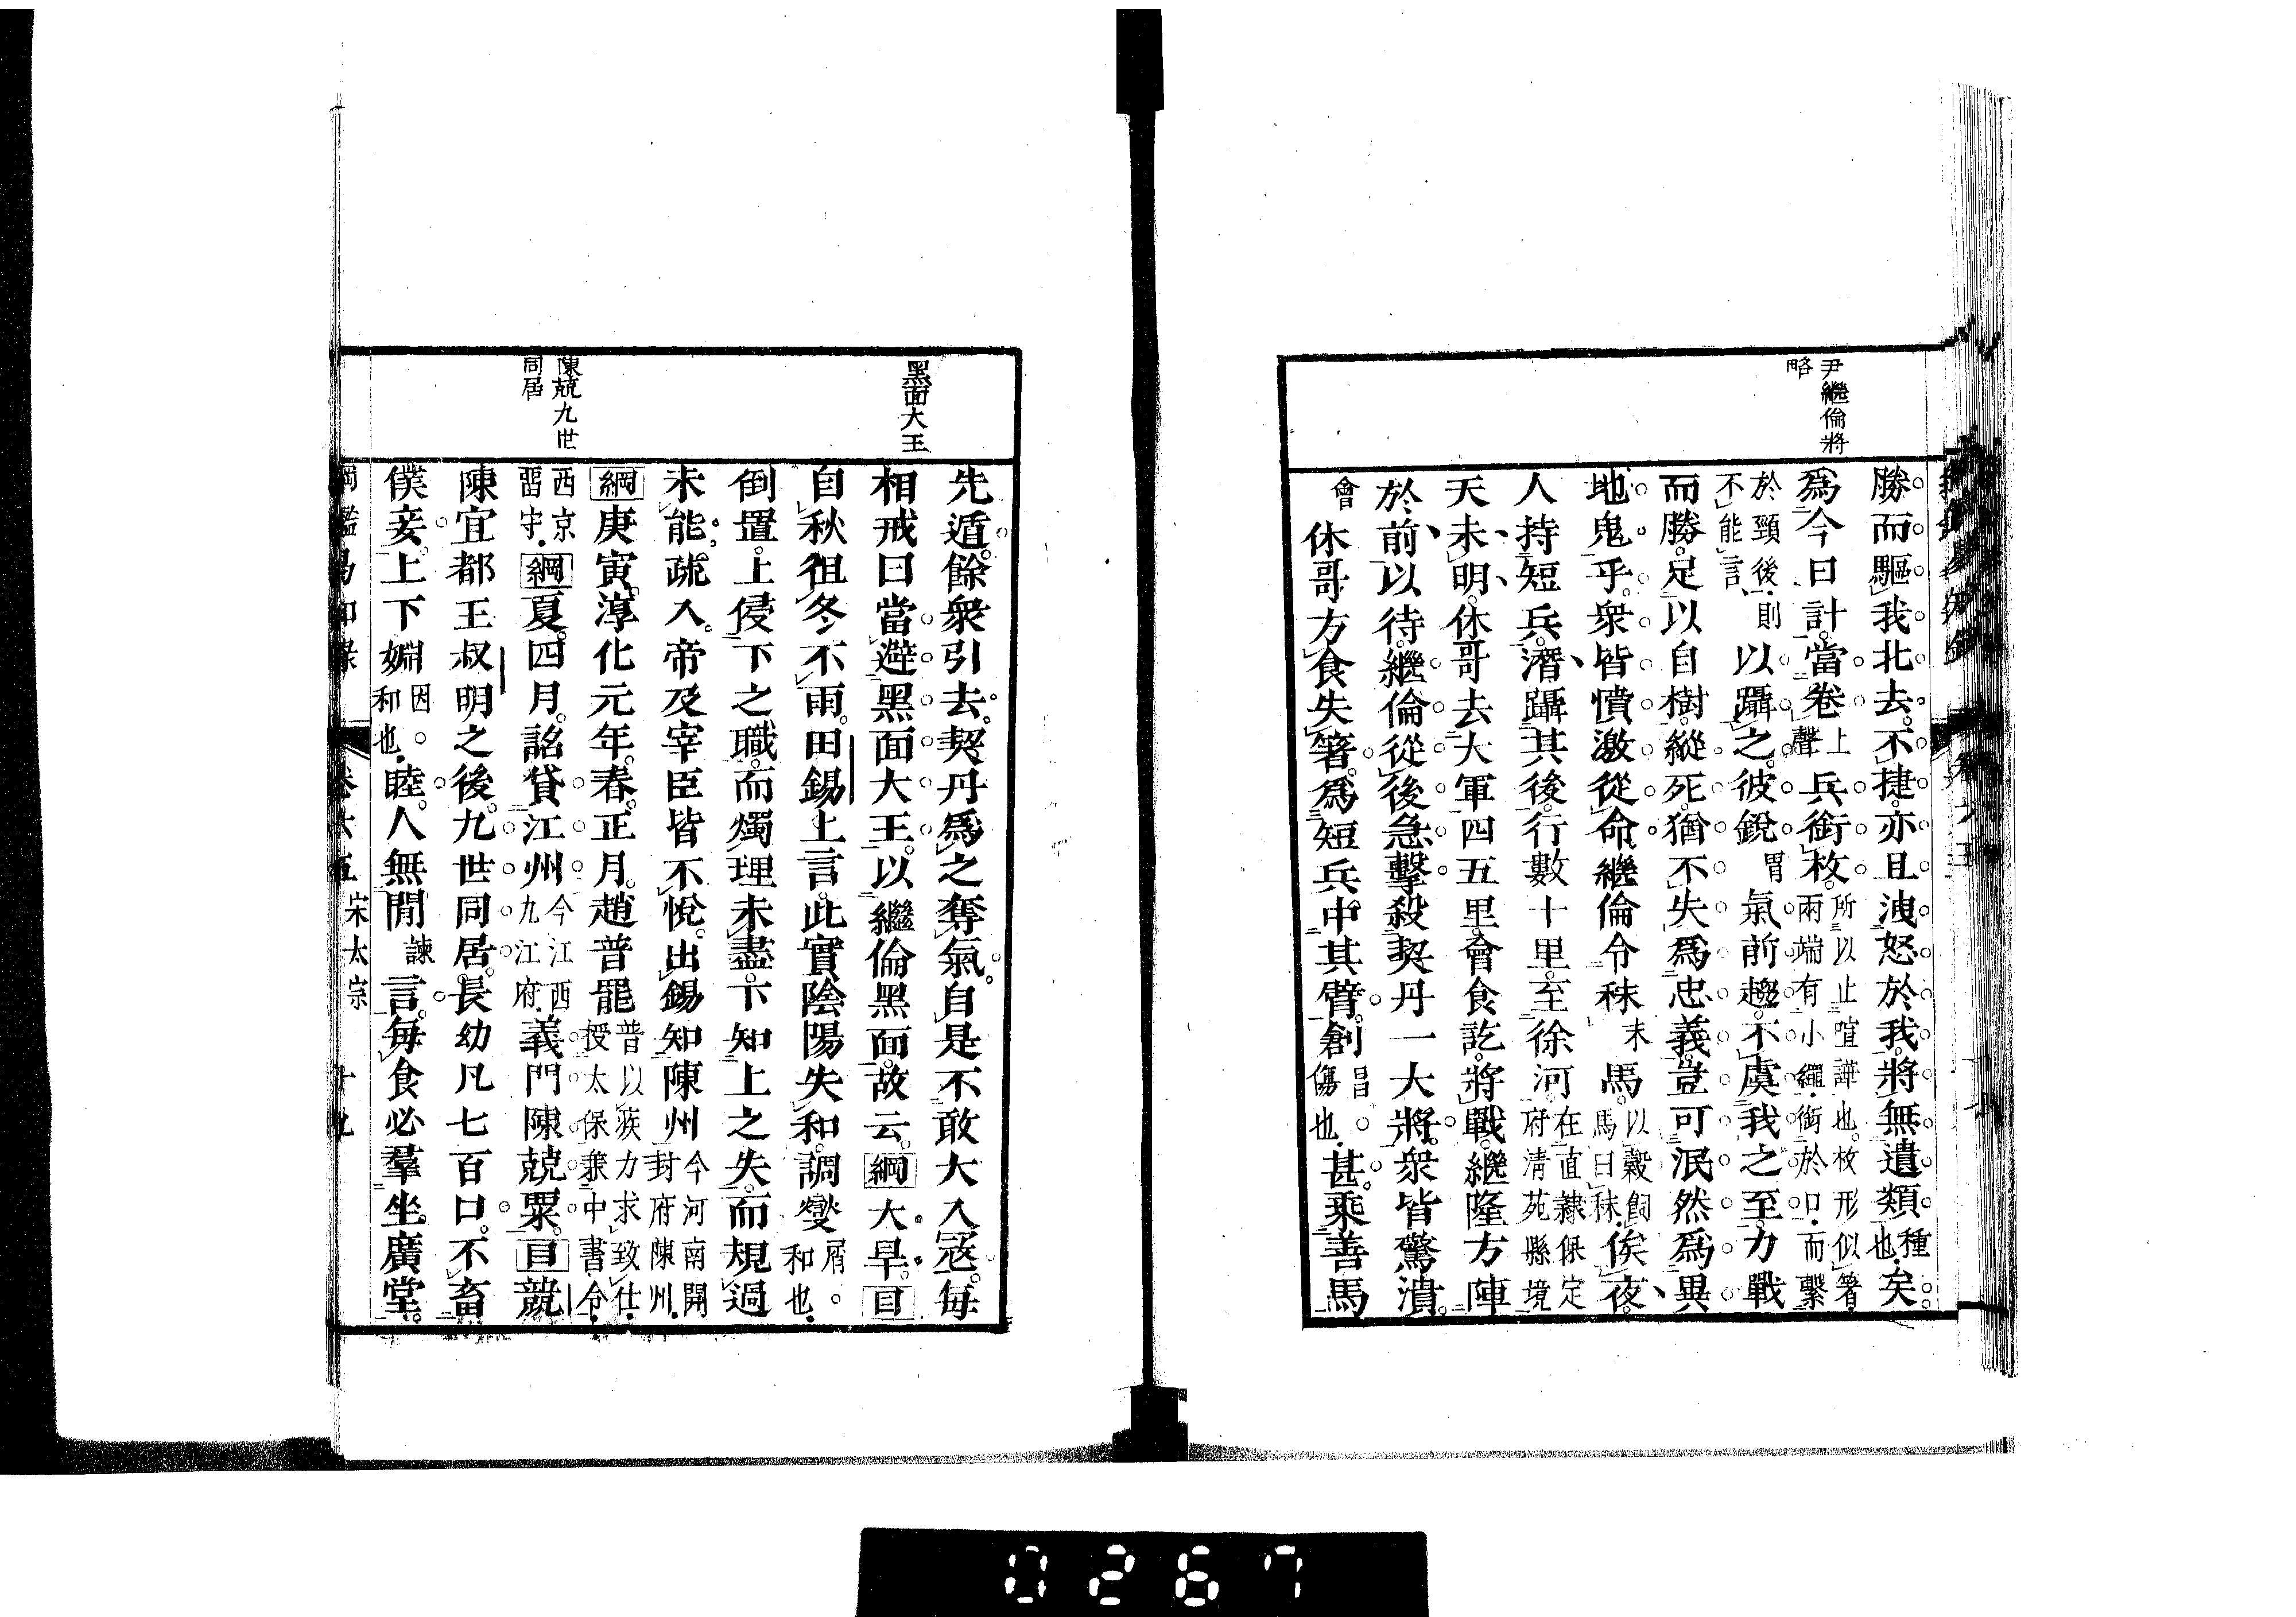 尹繼倫將
略
勝而驅我北去不捷亦且洩怒於我將無遺類種也矣
爲今日計當卷上聲兵銜枚所以止喧譁也枚形似箸兩端有小繩銜於口而繫
於頸後則不能言以躡之彼銳胃氣前趨不虞我之至力戰
而勝足以自樹縱死猶不失爲忠義豈可泯然爲異
地鬼乎衆皆憤激從命繼倫令秣末馬以穀飼馬曰秣俟夜
人持短兵潛躡其後行數十里至徐河在直隸保定府清苑縣境
天未明休哥去大軍四五里會食訖將戰繼隆方陣
於前以待繼倫從後急擊殺契丹一大將衆皆驚潰
會休哥方食失箸爲短兵中其臂創昌傷也甚乘善馬
黑面大王
陳兢九世
同居
先遁餘衆引去契丹爲之奪氣自是不敢大入寇每
相戒曰當避黑面大王以繼倫黑面故云綱大旱目
自秋徂冬不雨田錫上言此實陰陽失和調燮屑和也
倒置上侵下之職而燭理未盡下知上之失而規過
未能疏入帝及宰臣皆不悅出錫知陳州今河南開封府陳州
綱庚寅淳化元年春正月趙普罷普以疾力求致仕授太保兼中書令
西京留守綱夏四月詔貸江州今江西九江府義門陳兢粟目兢
陳宜都王叔明之後九世同居長幼凡七百口不畜
僕妾上下婣因和也睦人無閒諫言每食必羣坐廣堂
綱鑑易知錄 卷六五 宋太宗 十九